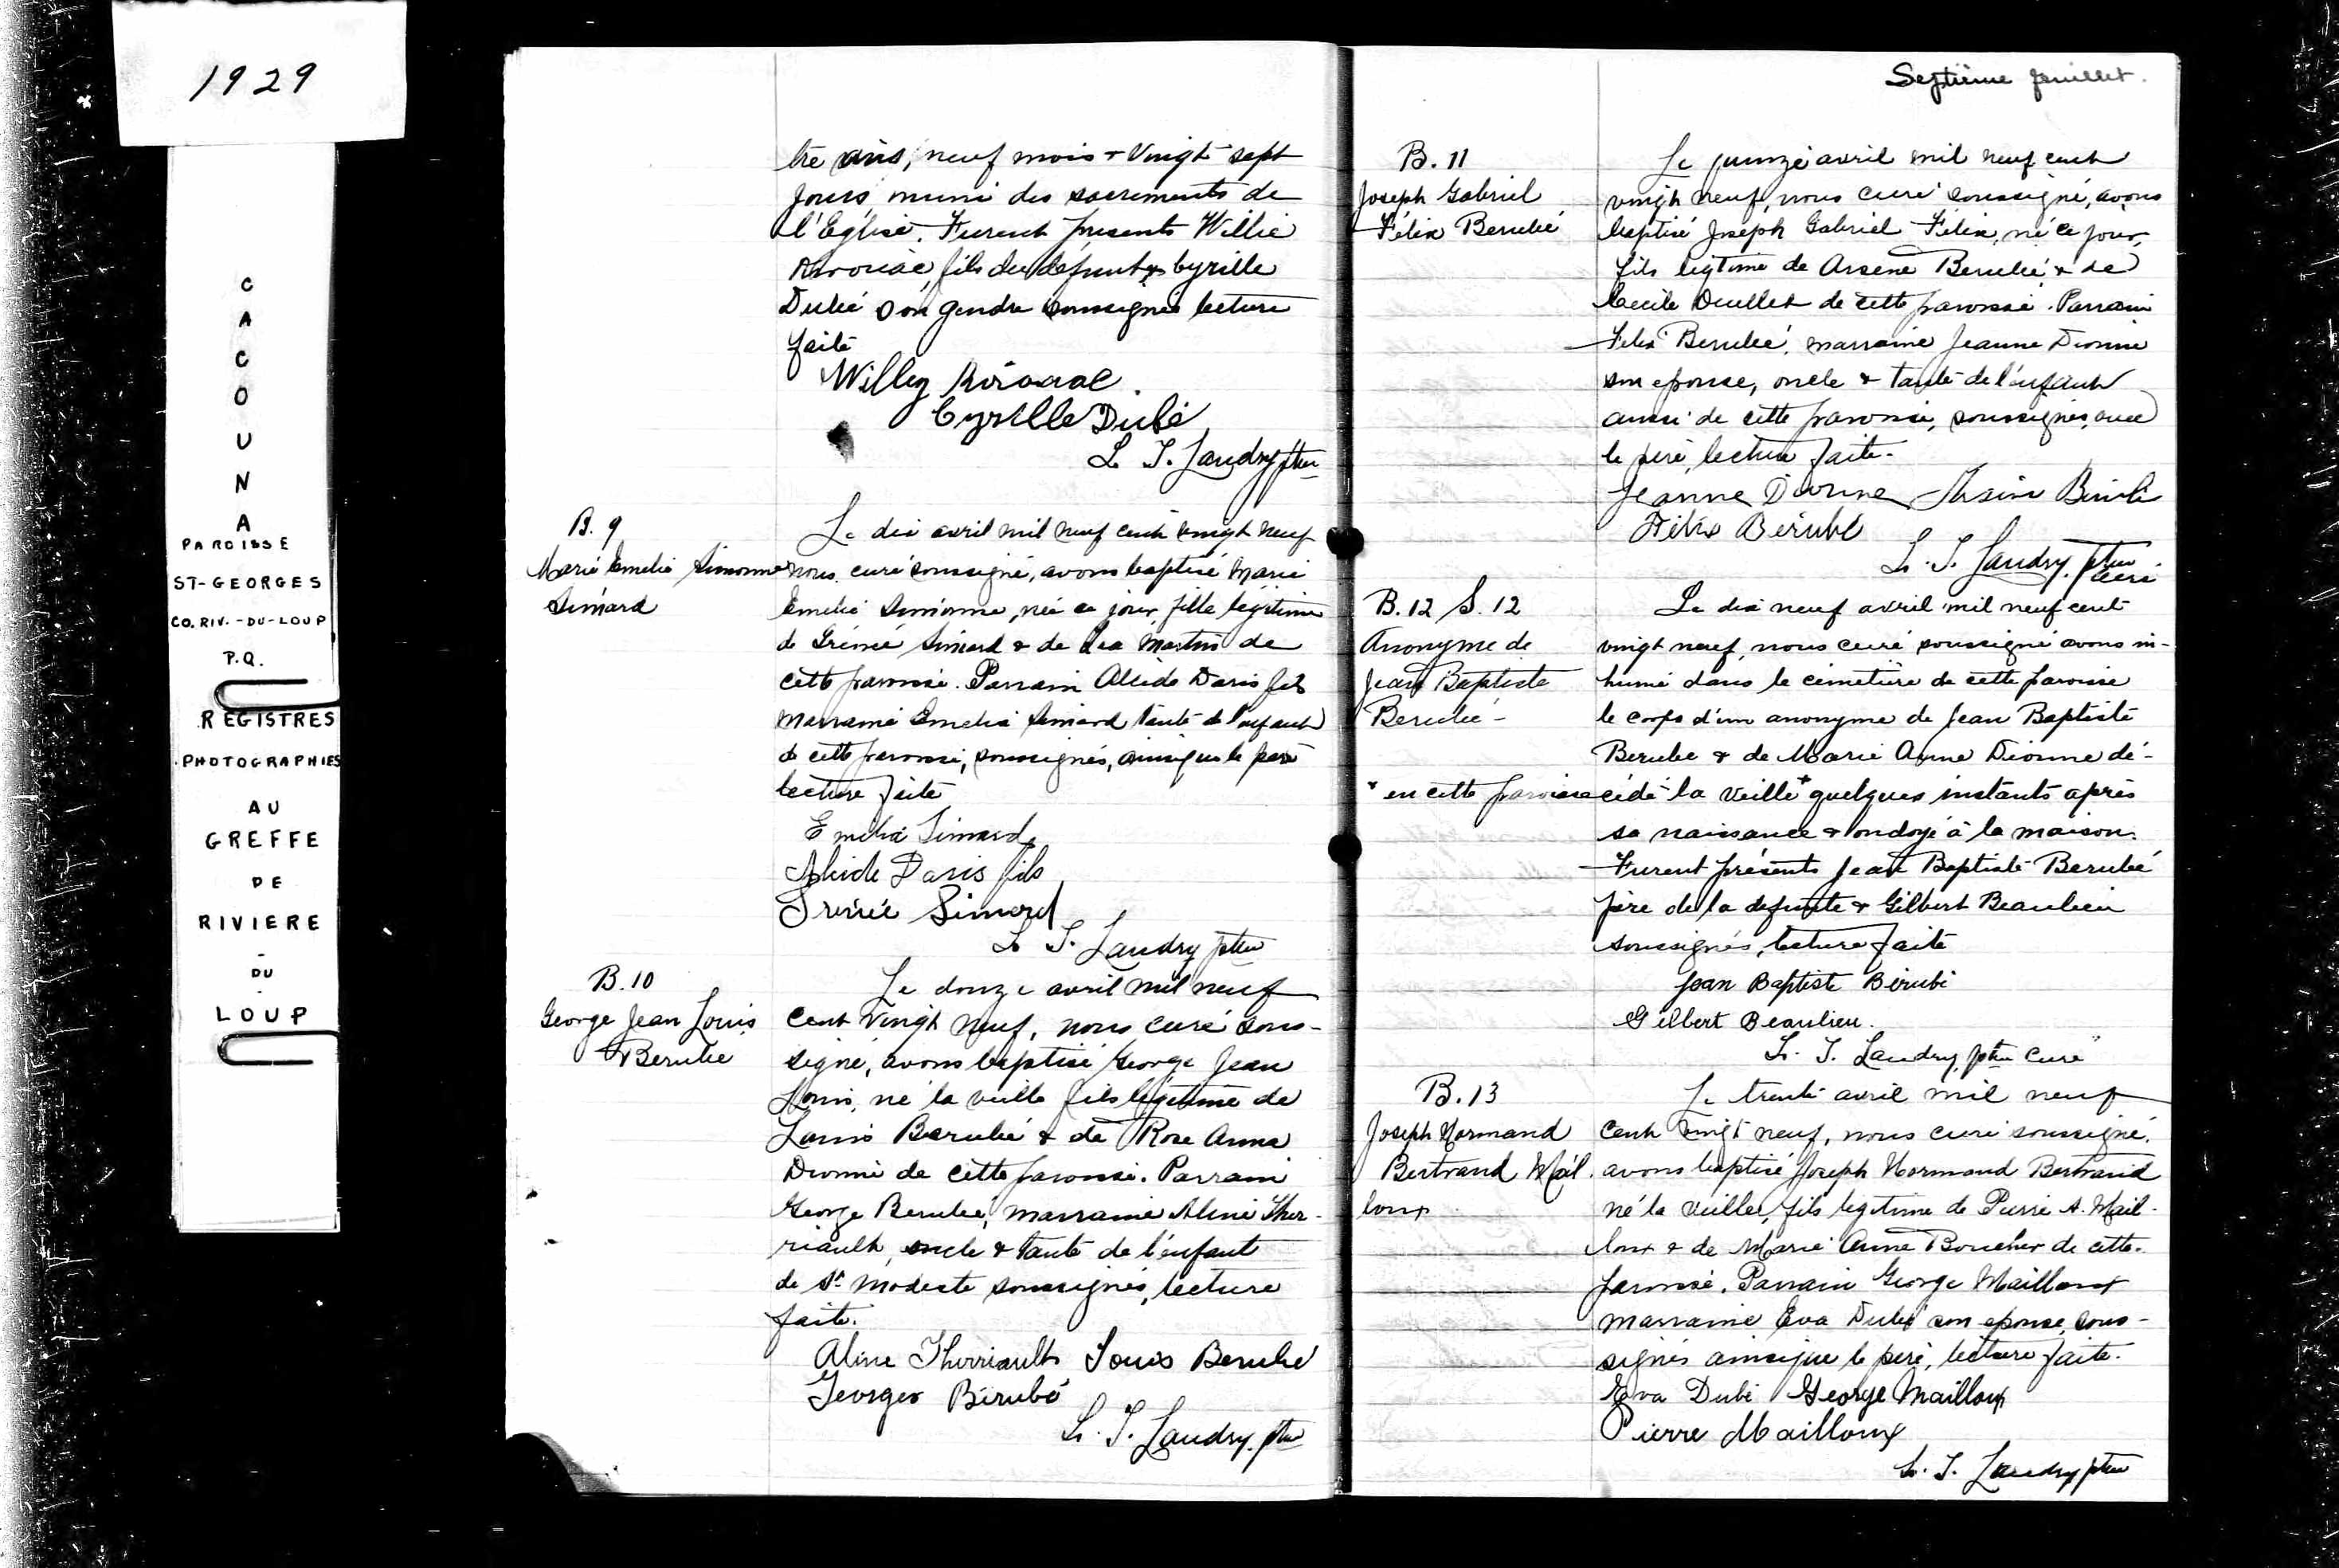 1929
C
A
C
O
U
N
A
PAROISSE
ST-GEORGES
CO. RIV.-DU-LOUP
P.Q.
REGISTRES
PHOTOGRAPHIES
AU
GREFFE
DE
RIVIERE
-
DU
-
LOUP
tre ans, neuf mois & vingt sept
jours muni des sacrements de
l'Eglise. Furent présents Willie
fils du defunt & Cyrille
Dubé son gendre soussignés lecture
faite
Willey
Cyrille Dubé
L. J. Landry ptre
B. 9
Marie Emelie Simonne
Simard
Le dix avril mil neuf cent vingt neuf
nous curé soussigné, avons baptisé Marie
Emelie Simonne, née ce jour, fille légitime
de Irénée Simard & de Léa Martin de
cette paroisse. Parrain Alcide Daris fils
marraine Emelia Simard tante de l'enfant
de cette paroisse, soussignés, ainsi que le père
lecture faite
Emelia Simard
Alcide Daris fils
Irénée Simard
L. J. Landry ptre
B. 10
George Jean Louis
Berube
Le douze avril mil neuf
cent vingt neuf, nous curé sous-
signé, avons baptisé George Jean
Louis, né la veille fils légitime de
Louis Berubé & de Rose Anna
Dionne de cette paroisse. Parrain
George Berubé, marraine Aline Ther-
riault, oncle & tante de l'enfant
de St Modeste soussignés, lecture
faite.
Aline Therriault Louis Berubé
Georges Bérubé
L. J. Landry ptre
Septième feuillet.
B. 11
Joseph Gabriel
Félix Berubé
Le quinze avril mil neuf cent
vingt neuf, nous curé soussigné, avons
baptisé Joseph Gabriel Félix, né ce jour,
fils légitime de Arsene Berubé & de
Cecile Ouellet de cette paroisse. Parrain
Felix Berubé, marraine Jeanne Dionne
son epouse, oncle & tante de l'enfant
aussi de cette paroisse, soussignés, avec
le père, lecture faite.
Jeanne Dionne Arsène Bérubé
Félix Bérubé
L. J. Landry, ptre
curé
B. 12 S. 12
Anonyme de
Jean Baptiste
Berubé -
Le dix neuf avril mil neuf cent
vingt neuf, nous curé soussigné avons in-
humé dans le cimetière de cette paroisse
le corps d'un anonyme de Jean Baptiste
Berube & de Marie Anne Dionne dé-
* en cette paroisse
cédé la veille * quelques instants après
sa naissance & ondoyé à la maison.
Furent présents Jean Baptiste Berubé
père de la defunte & Gilbert Beaulieu
soussignés, lecture faite
Jean Baptiste Bérubé
Gilbert Beaulieu.
L. J. Landry, ptre curé
B. 13
Joseph Normand
Bertrand Mail-
loux
Le trente avril mil neuf
cent vingt neuf, nous curé soussigné,
avons baptisé Joseph Normand Bertrand
né la veille, fils legitime de Pierre A. Mail-
loux & de Marie Anne Boucher de cette
paroisse. Parrain George Mailloux
marraine Eva Dubé son epouse, sous-
signés ainsi que le père, lecture faite.
Eva Dubé George Mailloux
Pierre Mailloux
L. J. Landry ptre